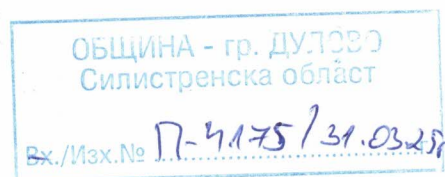 ОБЩИНА - гр. ДУЛОВО
Силистренска област
Вх./Изх.№ П-4175/31.03.25г